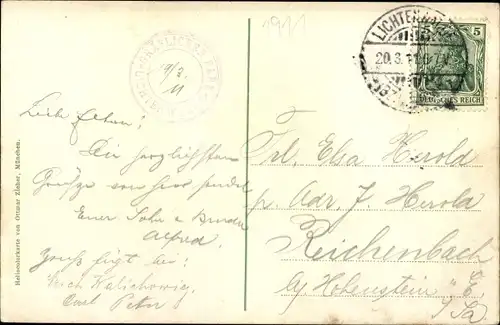 1911
LICHTENHAIN
20.3.11
5
DEUTSCHES REICH
19/3.
11
Liebe Eltern!
Die herzlichsten
Grüße von hier sendet
Euer Sohn u. Bruder
Alfred.
Gruß fügt bei:
Carl Peter
Frl. Elsa Herold
p. Adr. J. Herold
Reichenbach
b/ Hohenstein "E.
i/Sa.
Heliocolorkarte von Ottmar Zieher, München.